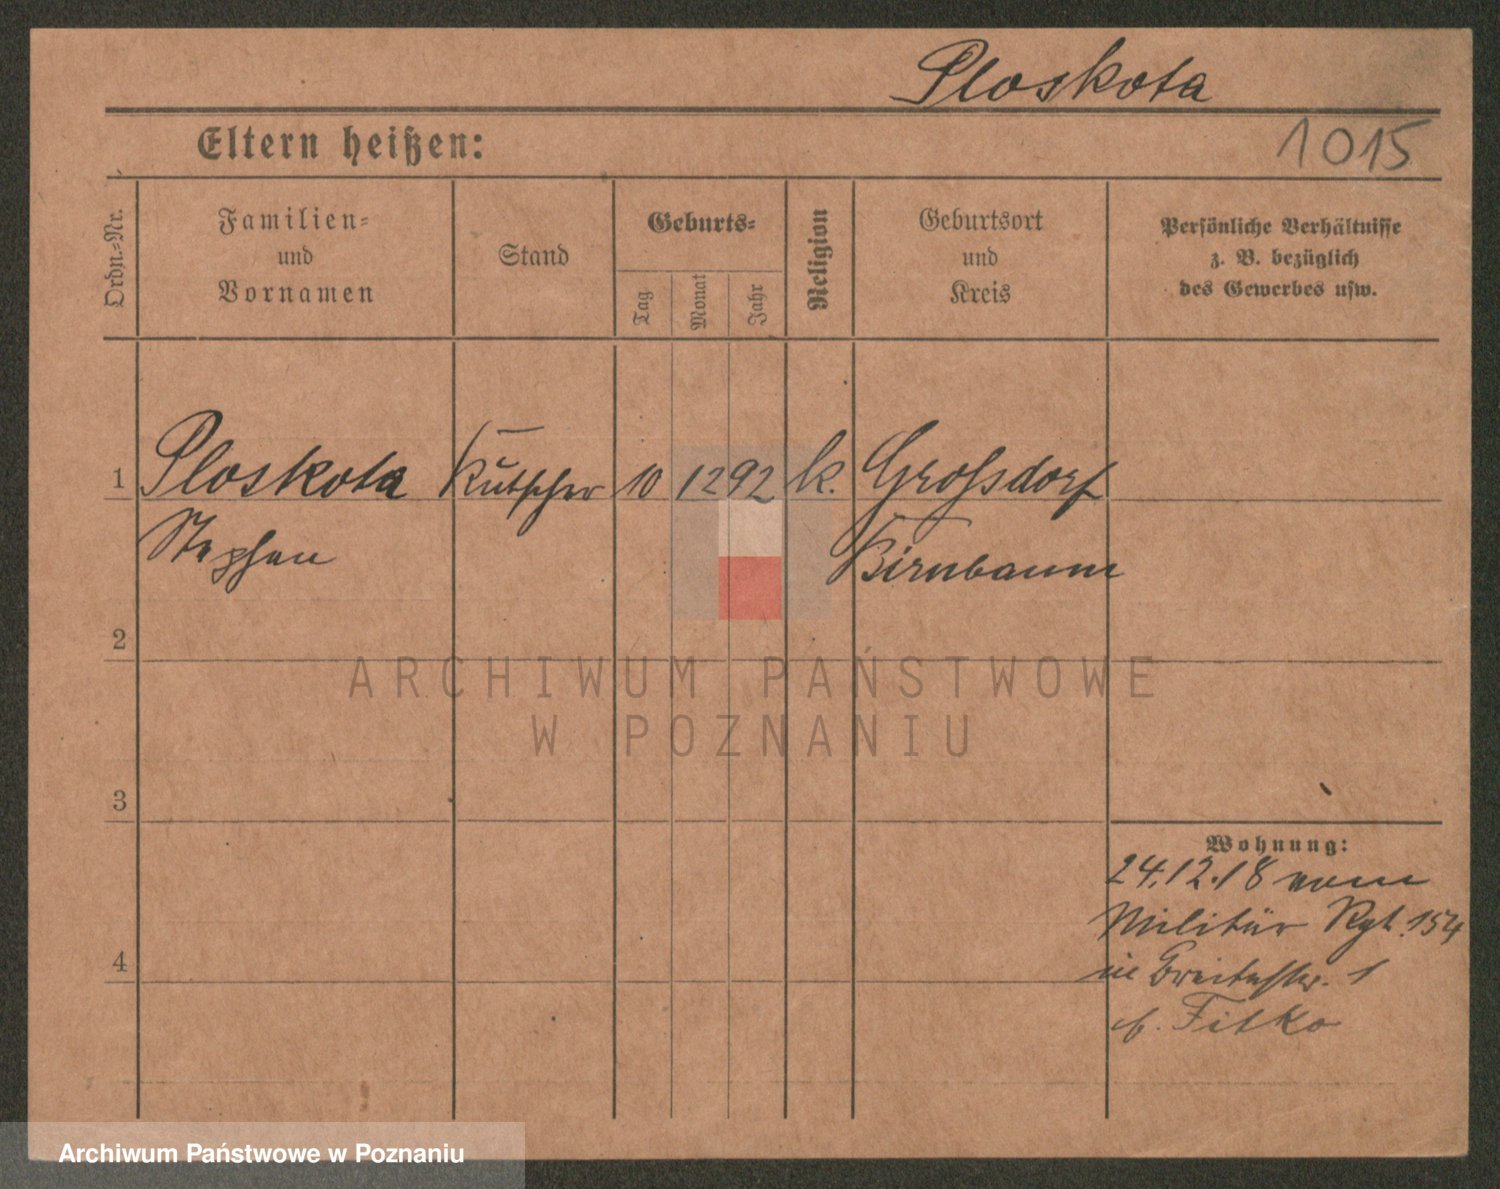 Ploskota
Eltern heißen:
1015
Ordn.=Nr.
Familien=
und
Vornamen
Stand
Geburts=
Tag
Monat
Jahr
Religion
Geburtsort
und
Kreis
Persönliche Verhältnisse
z. B. bezüglich
des Gewerbes usw.
1 Ploskota Kutscher 10 12 92 k. Grossdorf
Stephan Birnbaum
2
ARCHIWUM PAŃSTWOWE
W POZNANIU
3
Wohnung:
24.12.18 vom
Militär Rgt. 154
in Breitestr. 1
4
b. Fitko
Archiwum Państwowe w Poznaniu